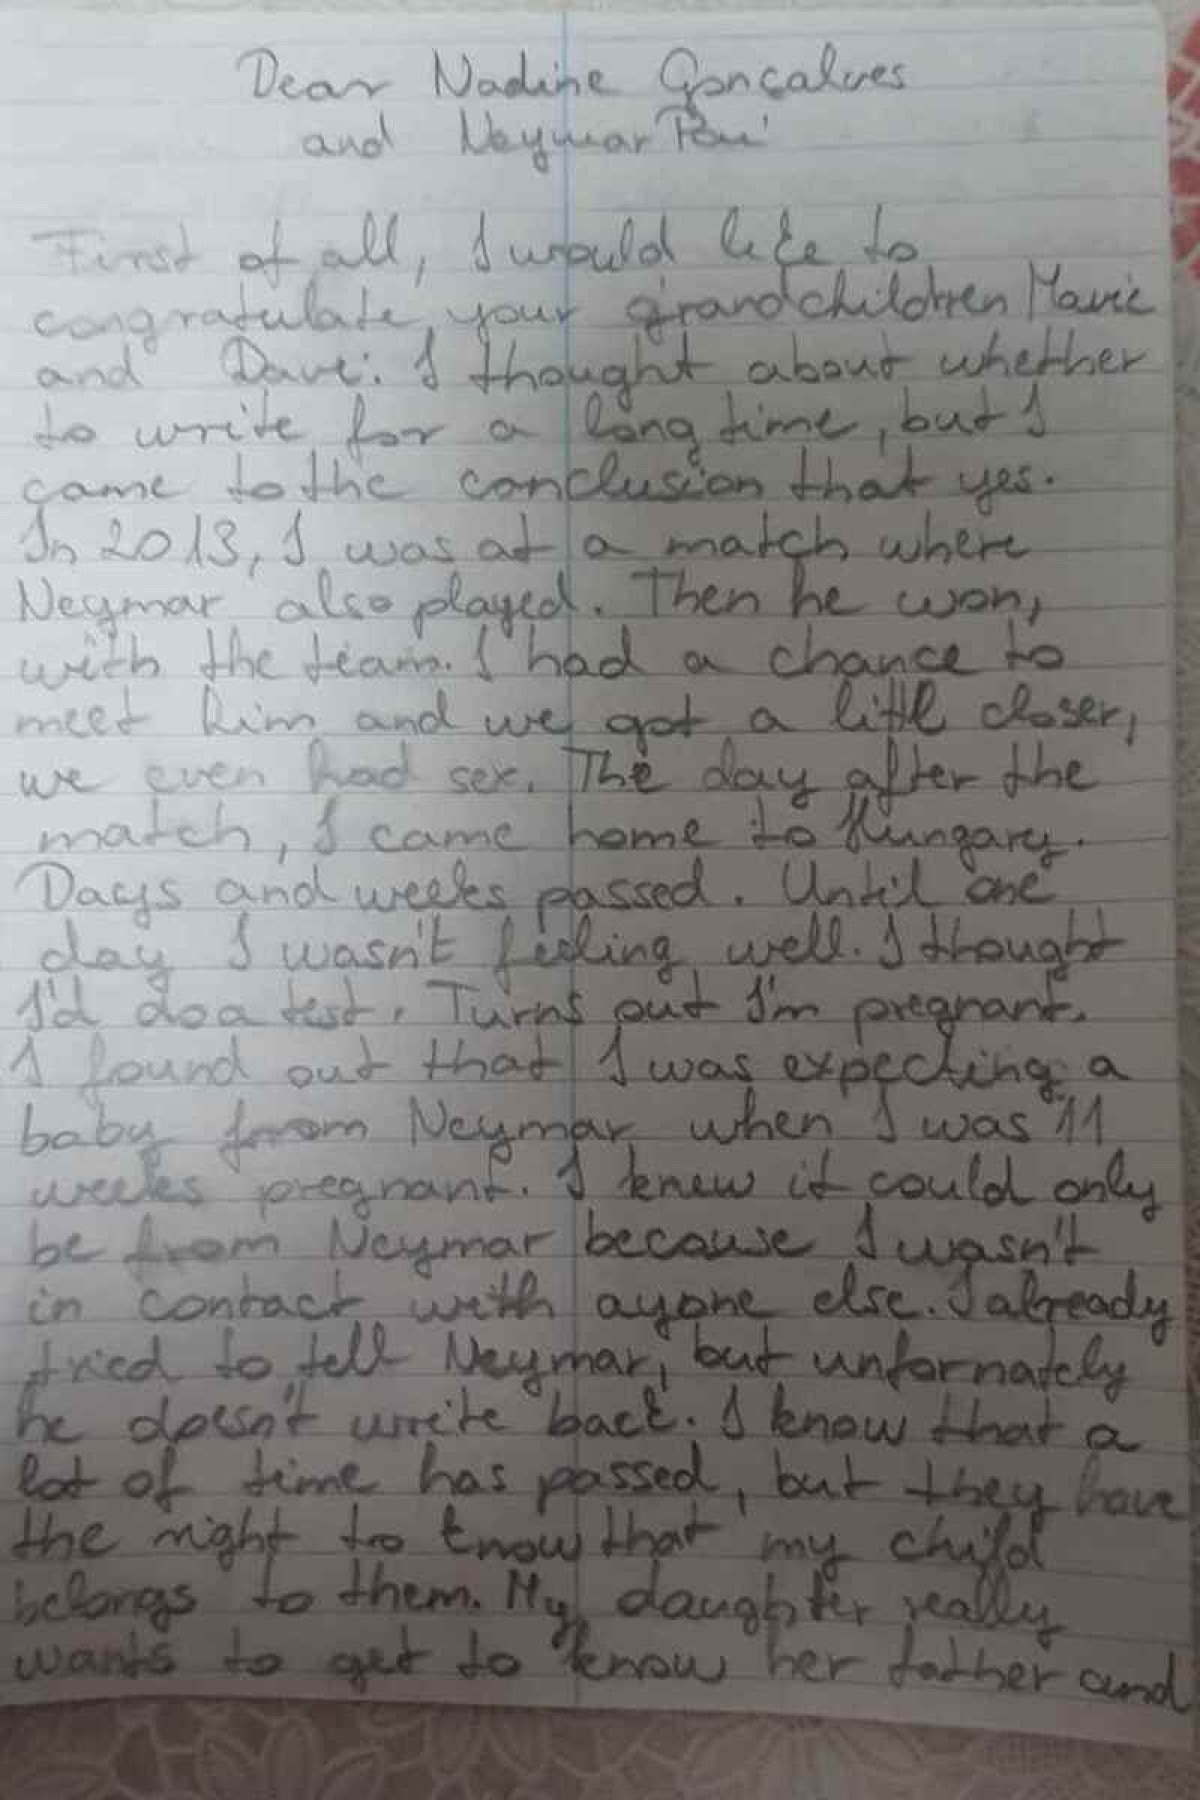 Dear Nadine Gonçalves
and Neymar Pai
First of all, I would like to
congratulate your grandchildren Mavie
and Davi. I thought about whether
to write for a long time, but I
came to the conclusion that yes.
In 2013, I was at a match where
Neymar also played. Then he won,
with the team. I had a chance to
meet him and we got a littl closer,
we even had sex. The day after the
match, I came home to Hungary.
Days and weeks passed. Until one
day I wasn't feeling well. I thought
I'd do a test. Turns out I'm pregnant.
I found out that I was expecting a
baby from Neymar when I was 11
weeks pregnant. I knew it could only
be from Neymar because I wasn't
in contact with ayone else. I already
tried to tell Neymar, but unfornately
he doesn't write back. I know that a
lot of time has passed, but they have
the right to know that my child
belongs to them. My daughter really
wants to get to know her father and